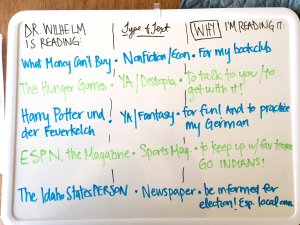 DR. WILHELM
IS READING:
Type of Text
WHY I'M READING IT:
What Money Can't Buy • Nonfiction/Econ • For my bookclub
The Hunger Games • YA/Distopia • to talk to you/to
get with it!
Harry Potter und
der Feuerkelch
YA/Fantasy • for fun! And to practice
my German
ESPN the Magazine • Sports Mag • to keep up w/fav teams
GO INDIANS!
The Idaho StatesPERSON • Newspaper • be informed for
election! Esp. local